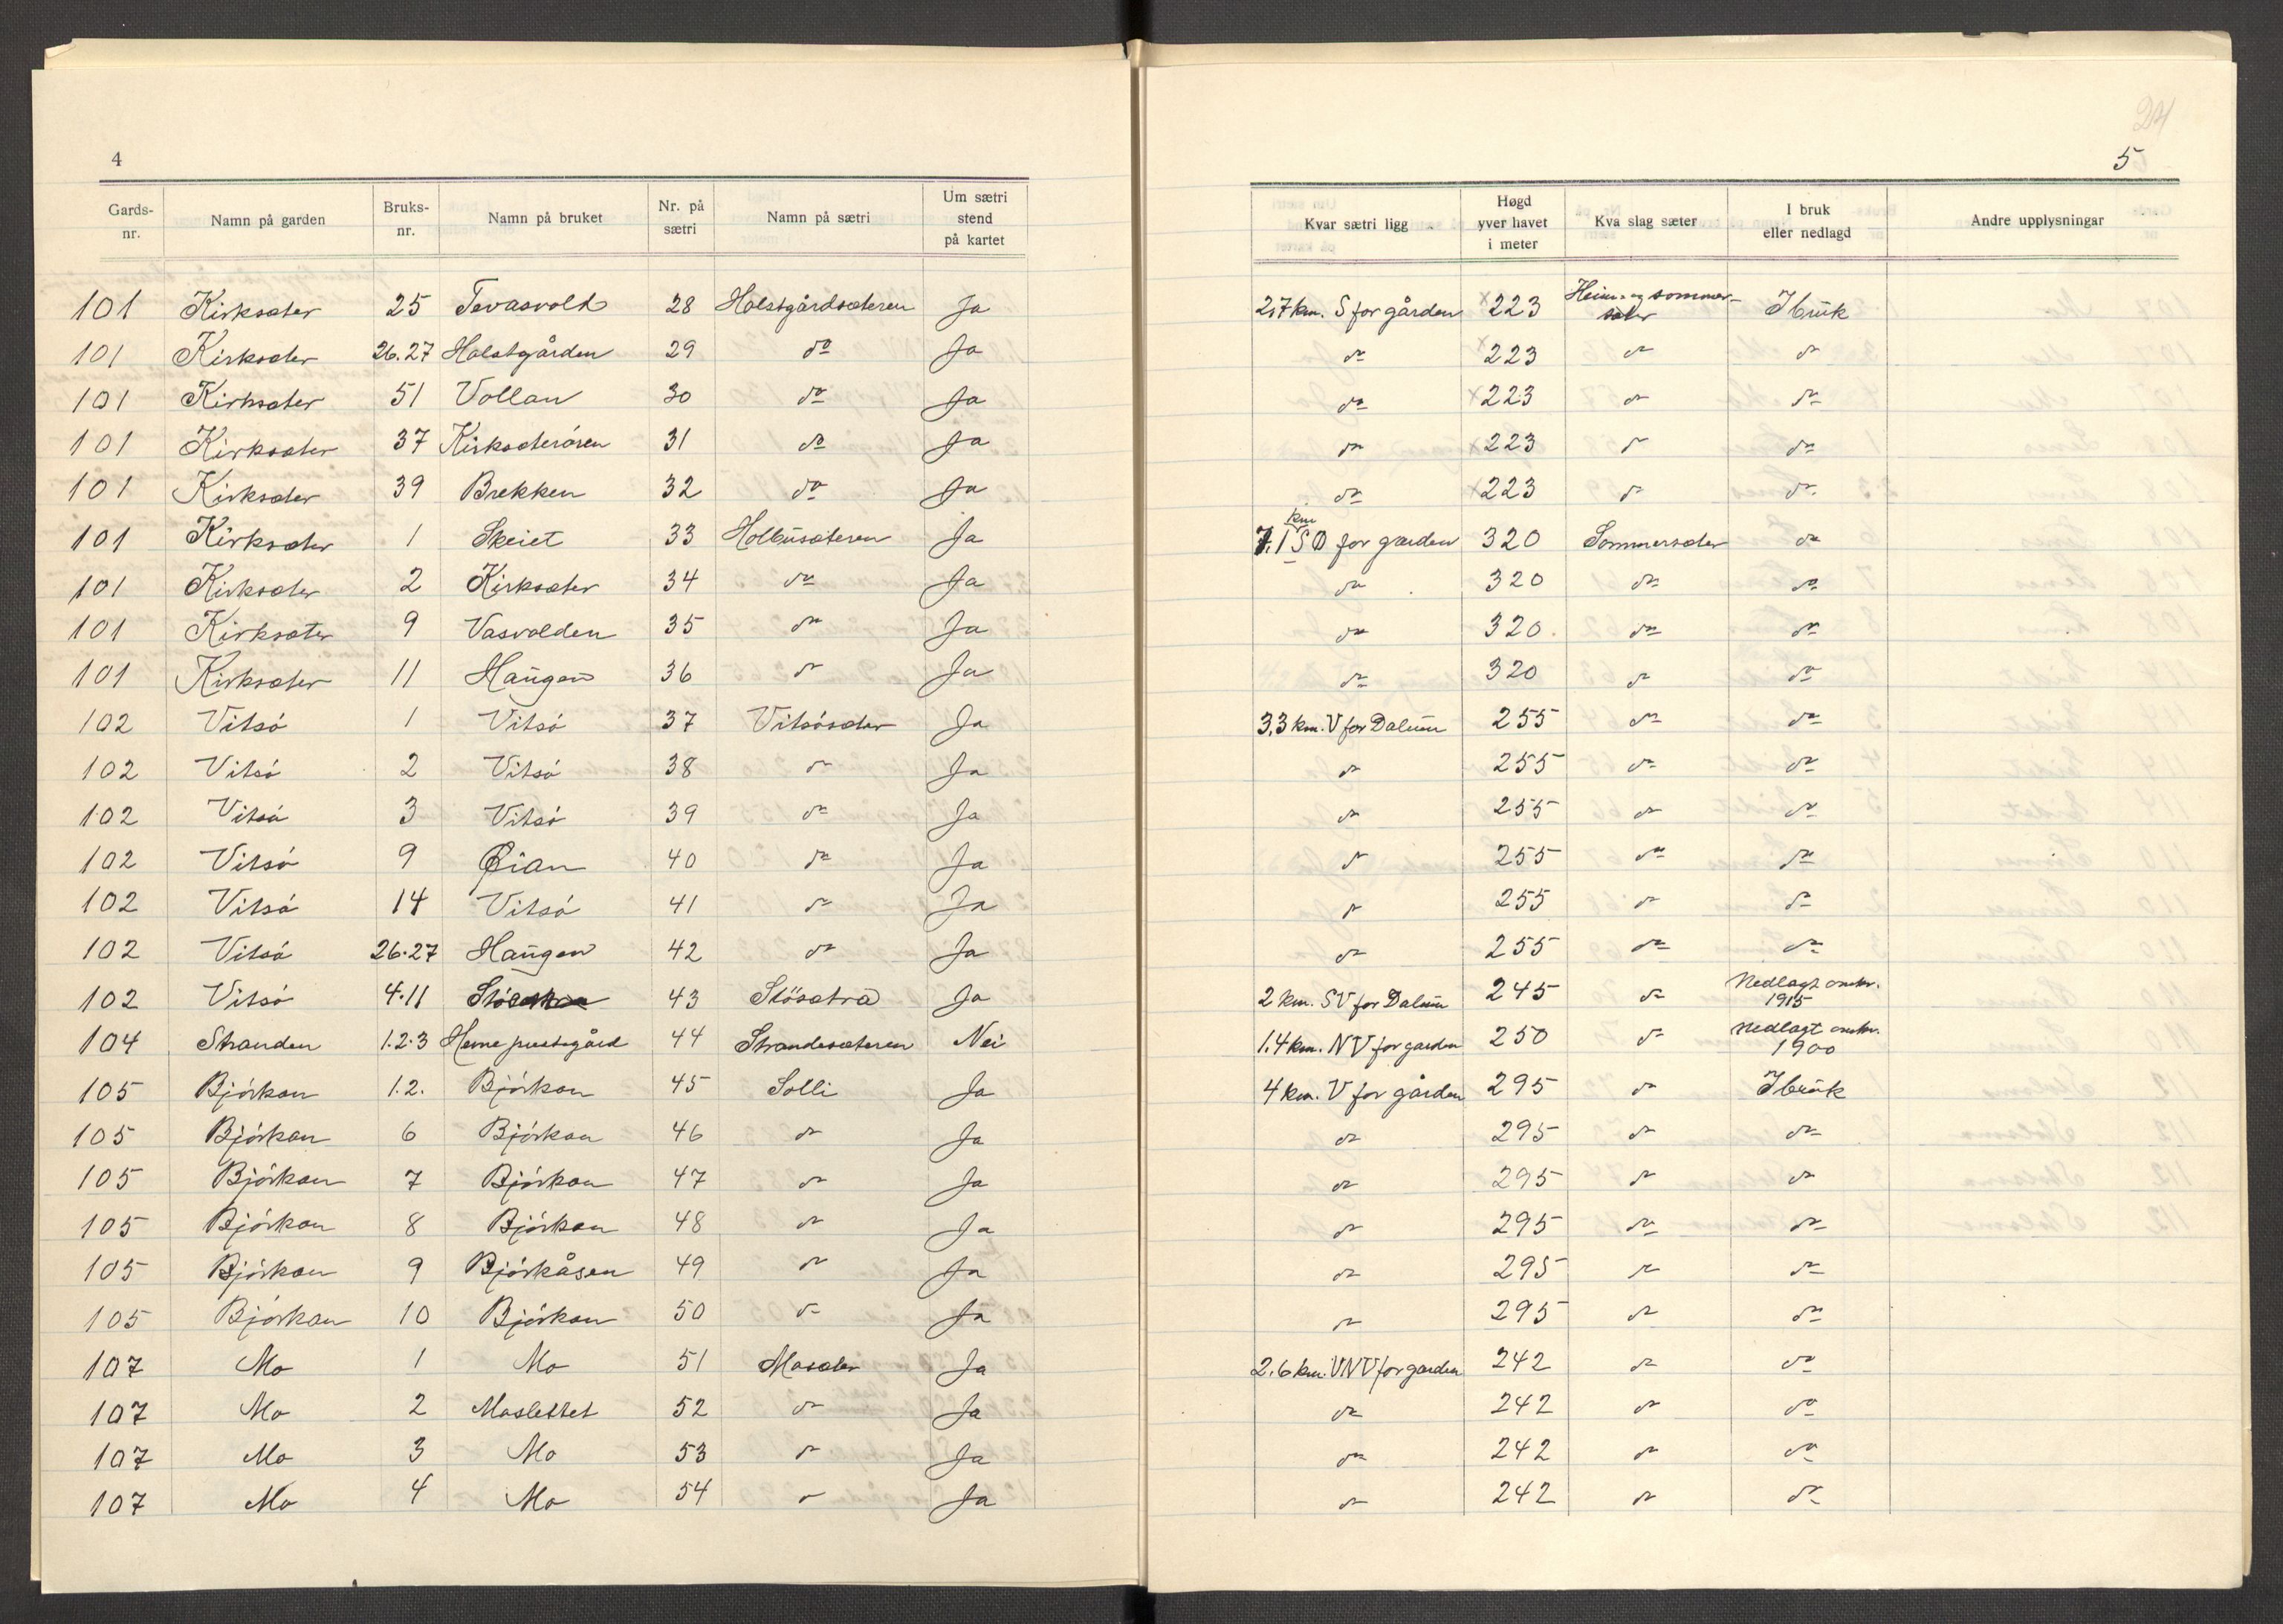 4
Gards-nr. Namn på garden Bruks-nr. Namn på bruket Nr. på sætri Namn på sætri Um sætri stend på kartet
101 Kirksæter 25 Tevasvold 28 Holstgårdsæteren Ja
101 Kirksæter 26.27 Holstgården 29 do Ja
101 Kirksæter 51 Vollan 30 do Ja
101 Kirksæter 37 Kirksæterören 31 do Ja
101 Kirksæter 39 Brekken 32 do Ja
101 Kirksæter 1 Skeiet 33 Holbusæteren Ja
101 Kirksæter 2 Kirksæter 34 do Ja
101 Kirksæter 9 Vasvolden 35 do Ja
101 Kirksæter 11 Haugen 36 do Ja
102 Vitsó 1 Vitsó 37 Vitsósæter Ja
102 Vitsó 2 Vitsó 38 do Ja
102 Vitsó 3 Vitsó 39 do Ja
102 Vitsó 9 Øian 40 do Ja
102 Vitsó 14 Vitsó 41 do Ja
102 Vitsó 26.27 Haugen 42 do Ja
102 Vitsó 4.11 43 Stösætra Ja
104 Stranden 1.2.3 Hemne prestegård 44 Strandesæteren Nei
105 Bjórkan 1.2. Bjórkan 45 Solli Ja
105 Bjórkan 6 Bjórkan 46 do Ja
105 Bjórkan 7 Bjórkan 47 do Ja
105 Bjórkan 8 Bjórkan 48 do Ja
105 Bjórkan 9 Bjórkåsen 49 do Ja
105 Bjórkan 10 Bjórkan 50 do Ja
107 Mo 1 Mo 51 Mosæter Ja
107 Mo 2 Moslettet 52 do Ja
107 Mo 3 Mo 53 do Ja
107 Mo 4 Mo 54 do Ja
5
Kvar sætri ligg Høgd yver havet i meter Kva slag sæter I bruk eller nedlagd Andre upplysningar
2,7 km. S for gården x 223 Heim- og sommersæter I bruk
do x 223 do do
do x 223 do do
do x 223 do do
do x 223 do do
7.1 km SØ for garden 320 Sommersæter do
do 320 do do
do 320 do do
do 320 do do
3,3 km. V for Dalum 255 do do
do 255 do do
do 255 do do
do 255 do do
do 255 do do
do 255 do do
2 km. SV for Dalum 245 do Nedlagt omkr. 1915
1.4 km. NV for garden 250 do Nedlagt omkr. 1900
4 km. V for gården 295 do I bruk
do 295 do do
do 295 do do
do 295 do do
do 295 do do
do 295 do do
2.6 km. VNV for garden 242 do do
do 242 do do
do 242 do do
do 242 do do